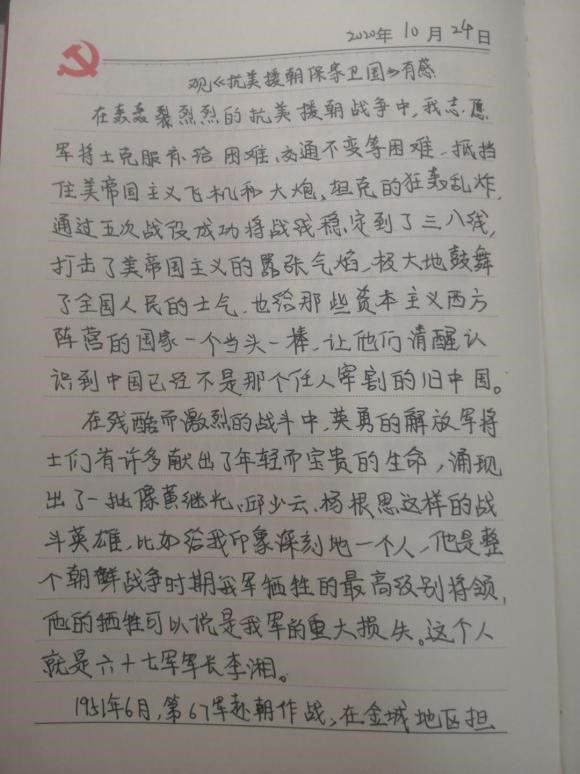 2020年 10 月 24 日
观《抗美援朝保家卫国》有感
在轰轰裂烈烈的抗美援朝战争中,我志愿
军将士克服补给困难、交通不变等困难、抵挡
住美帝国主义飞机和大炮、坦克的狂轰乱炸,
通过五次战役成功将战线稳定到了三八线,
打击了美帝国主义的嚣张气焰、极大地鼓舞
了全国人民的士气、也给那些资本主义西方
阵营的国家一个当头一棒、让他们清醒认
识到中国已经不是那个任人宰割的旧中国。
在残酷而激烈的战斗中,英勇的解放军将
士们有许多献出了年轻而宝贵的生命,涌现
出了一批像黄继光、邱少云、杨根思这样的战
斗英雄、比如给我印象深刻地一个人、他是整
个朝鲜战争时期我军牺牲的最高级别将领,
他的牺牲可以说是我军的重大损失。这个人
就是六十七军军长李湘。
1951年6月,第67军赴朝作战,在金城地区担